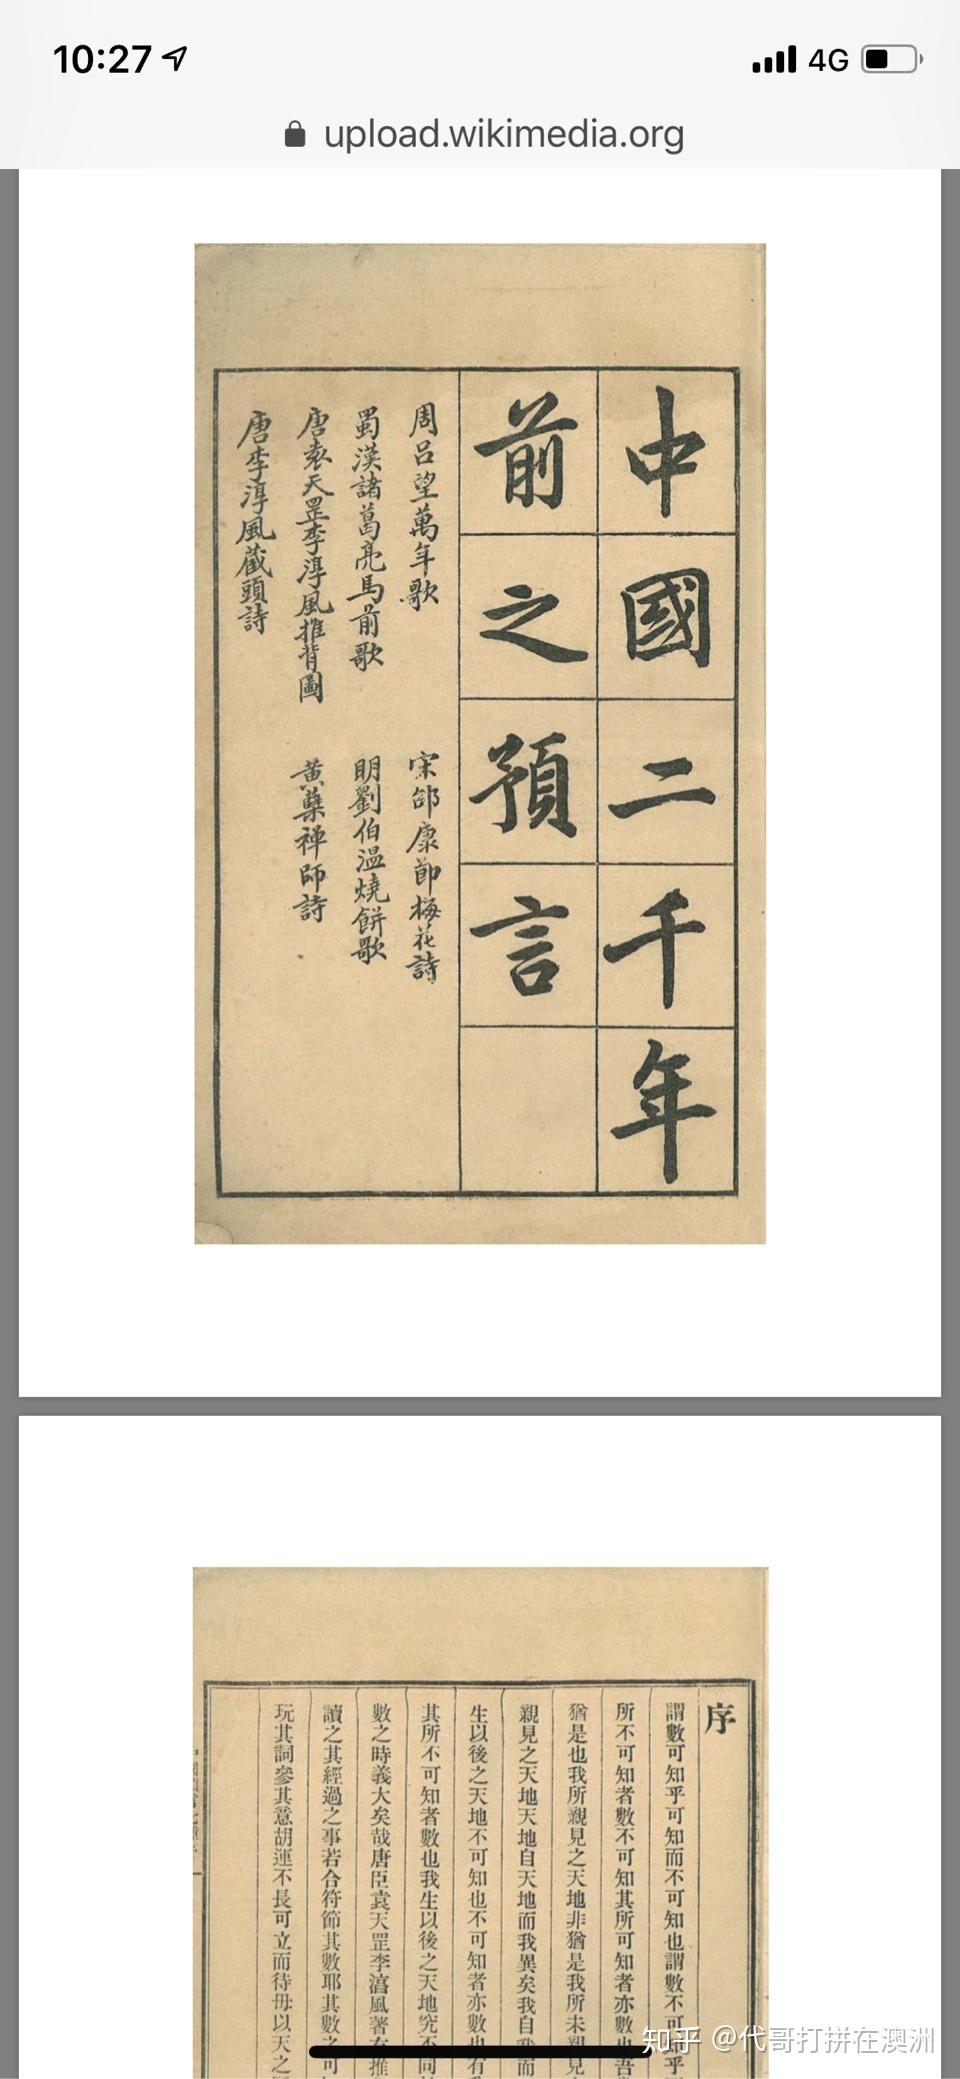 10:27
4G
upload.wikimedia.org
中國二千年
前之預言
周呂望萬年歌
宋邵康節梅花詩
蜀漢諸葛亮馬前歌
明劉伯溫燒餅歌
唐袁天罡李淳風推背圖
黃蘗禪師詩
唐李淳風藏頭詩
序
謂數可知乎可知而不可知也謂數不可知乎
所不可知者數不可知其所可知者亦數也吾
猶是也我所親見之天地非猶是我所未親見
親見之天地天地自天地而我異矣我自我而
生以後之天地不可知也不可知者亦數也有
其所不可知者數也我生以後之天地究不同
數之時義大矣哉唐臣袁天罡李淳風著有推
讀之其經過之事若合符節其數耶其數之可
玩其詞參其意胡運不長可立而待毋以天之
知乎 @代哥打拼在澳洲